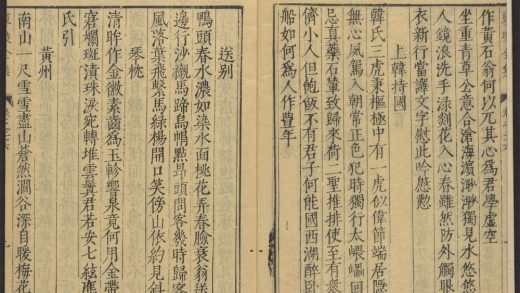 作黃石翁何以元其心爲君學虛空
坐重青草公意合滄海濱渺渺獨見水悠悠
人鏡浪洗手淥剡花入心春雖然防外觸眼
衣新行當譯文字慰此吟慇懃
上韓持國
韓氏三虎秉樞極中有一虎似偉節端居隱
無心夙駕入朝常正色犯時獨行太嵲屼回
忌直藥石輦致歸來荷二聖推排使至有嘉
儕小人但飽飯不有君子何能國西湖醉臥
船如何爲人作豐年
送別
鴨頭春水濃如染水面桃花弄春臉衰翁送
邊行沙襯馬蹄烏帽點昂頭問客幾時歸客
風落葉飛繫馬綠楊開口笑傍山依約見斜
琴枕
清眸作金徽素齒爲玉軫響泉竟何用金帶
窘斕斑漬珠淚宛轉堆雲鬒君若安七絃應
氏引
黃州
南山一尺雪雪盡山蒼然澗谷深自暖梅花